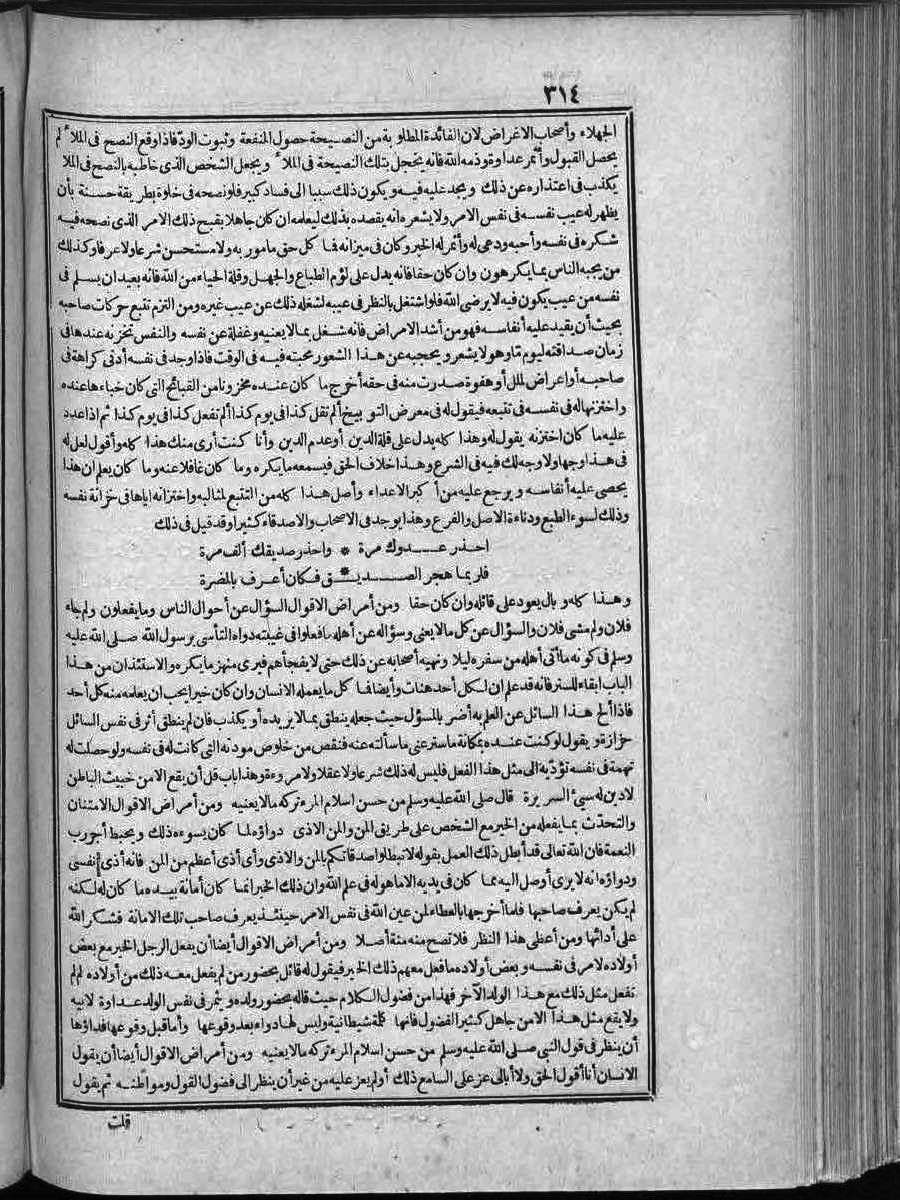 ٣١٤
الجهلاء وأصحاب الاغراض لان الفائدة المطلوبة من النصيحة حصول المنفعة وثبوت الود فاذا وقع النصح فى الملأ لم
يحصل القبول وأثمر عداوة وذمه الله فانه يخجل بتلك النصيحة فى الملأ ويجعل الشخص الذى خاطبه بالنصح فى الملا
يكذب فى اعتذاره عن ذلك ويجد عليه فيه ويكون ذلك سببا الى فساد كبير فلو نصحه فى خلوة بطريقة حسنة بأن
يظهر له عيب نفسه فى نفس الامر ولا يشعره انه يقصده بذلك ليعلمه ان كان جاهلا بقبح ذلك الامر الذى نصحه فيه
شكره فى نفسه وأحبه ودعى له وأثمر له الخير وكان فى ميزانه فما كل حق مامور به ولا مستحسن شرعا ولا عرفا وكذلك
من يجبه الناس بما يكرهون وان كان حقا فانه يدل على لؤم الطباع والجهل وقلة الحياء من الله فانه بعيد ان يسلم فى
نفسه من عيب يكون فيه لا يرضى الله فلو اشتغل بالنظر فى عيبه لشغله ذلك عن عيب غيره ومن التزم تتبع حركات صاحبه
بحيث أن يقيد عليه أنفاسه فهو من أشد الامراض فانه شغل بما لا يعنيه وغفلة عن نفسه والنفس تخزنه عندها فى
زمان صداقته ليوم ما وهو لا يشعر ويحجبه عن هذا الشعور محبته فيه فى الوقت فاذا وجد فى نفسه أدنى كراهة فى
صاحبه أو اعراض لملل أو هفوة صدرت منه فى حقه أخرج ما كان عنده مخزونا من القبائح التى كان خباءها عنده
واختزنها له فى نفسه فى تتبعه فيقول له فى معرض التوبيخ ألم تقل كذا فى يوم كذا ألم تفعل كذا فى يوم كذا ثم اذا عدد
عليه ما كان اختزنه يقول له وهذا كله يدل على قلة الدين أو عدم الدين وأنا كنت أرى منك هذا كله وأقول لعل له
فى هذا وجها ولا وجه لك فيه فى الشرع وهذا خلاف الحق فيسمعه ما يكره وما كان غافلا عنه وما كان يعلم ان هذا
يحصى عليه أنفاسه ويرجع عليه من أكبر الاعداء وأصل هذا كله من التتبع لمثالبه واختزانه اياها فى خزانة نفسه
وذلك لسوء الطبع ودناءة الاصل والفرع وهذا يوجد فى الاصحاب والاصدقاء كثيرا وقد قيل فى ذلك
احذر عدوك مرة * واحذر صديقك ألف مرة
فلربما هجر الصديـ * ـق فكان أعرف بالمضرة
وهذا كله وبال يعود على قائله وان كان حقا ومن أمراض الاقوال السؤال عن أحوال الناس وما يفعلون ولم جاء
فلان ولم مشى فلان والسؤال عن كل ما لا يعنى وسؤاله عن أهله ما فعلوا فى غيبته دواه التأسى برسول الله صلى الله عليه
وسلم فى كونه ما أتى أهله من سفره ليلا ونهيه أصحابه عن ذلك حتى لا يفجأهم فيرى منهن ما يكره والاستئذان من هذا
الباب ابقاء للستر فانه قد علم ان لكل أحد هنات وأيضا فما كل ما يعمله الانسان وان كان خيرا يحب ان يعلمه منه كل أحد
فاذا ألح هذا السائل عن العلم به أضر بالمسؤل حيث جعله ينطق بما لا يريده أو يكذب فان لم ينطق أثر فى نفس السائل
حزازة ويقول لو كنت عنده بمكانة ما ستر عنى ما سألته عنه فنقص من خلوص مودته التى كانت له فى نفسه ولو حصلت له
تهمة فى نفسه تؤدّيه الى مثل هذا الفعل فليس له ذلك شرعا ولا عقلا ولا مروءة وهذا باب قل أن يقع الا من خبيث الباطن
لا دين له سىء السريرة قال صلى الله عليه وسلم من حسن اسلام المرء تركه ما لا يعنيه ومن أمراض الاقوال الامتنان
والتحدّث بما يفعله من الخير مع الشخص على طريق المن والمن الاذى دواؤه لما كان يسوءه ذلك ويحبط أجر رب
النعمة فان الله تعالى قد أبطل ذلك العمل بقوله لا تبطلوا صدقاتكم بالمن والاذى وأى أذى أعظم من المن فانه أذى نفسى
ودواؤه انه لا يرى أوصل اليه مما كان فى يديه الا ما هو له فى علم الله وان ذلك الخير انما كان أمانة بيده ما كان له لكنه
لم يكن يعرف صاحبها فلما أخرجها بالعطاء لمن عين الله فى نفس الامر حينئذ يعرف صاحب تلك الامانة فشكر الله
على أدائها ومن أعطى هذا النظر فلا تصح منه منة أصلا ومن أمراض الاقوال أيضا أن يفعل الرجل الخير مع بعض
أولاده لامر فى نفسه وبعض أولاده ما فعل معهم ذلك الخير فيقول له قائل بحضور من لم يفعل معه ذلك من أولاده لم لم
تفعل مثل ذلك مع هذا الولد الآخر فهذا من فضول الكلام حيث قاله بحضور ولده ويثمر فى نفس الولد عداوة لابيه
ولا يقع مثل هذا الا من جاهل كثير الفضول فانها كلمة شيطانية وليس لها دواء بعد وقوعها وأما قبل وقوعها فدواؤها
أن ينظر فى قول النبى صلى الله عليه وسلم من حسن اسلام المرء تركه ما لا يعنيه ومن أمراض الاقوال أيضا أن يقول
الانسان أنا أقول الحق ولا أبالى عز على السامع ذلك أو لم يعز عليه من غير أن ينظر الى فضول القول ومواطنه ثم يقول
قلت